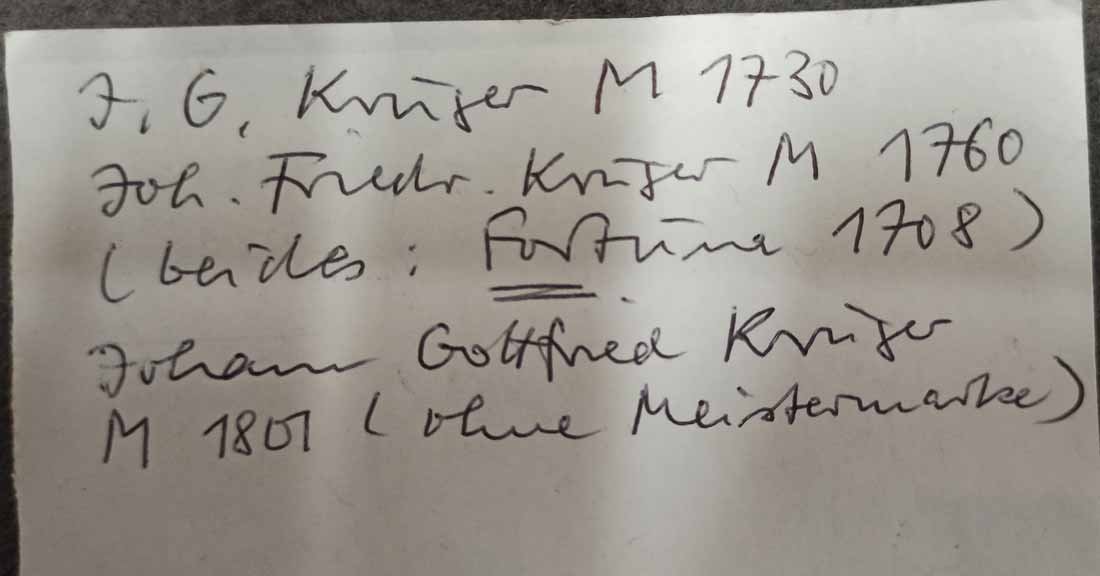 J. G. Krüger M 1730
Joh. Friedr. Krüger M 1760
(beides: Fortuna 1708)
Johann Gottfried Krüger
M 1801 (ohne Meistermarke)